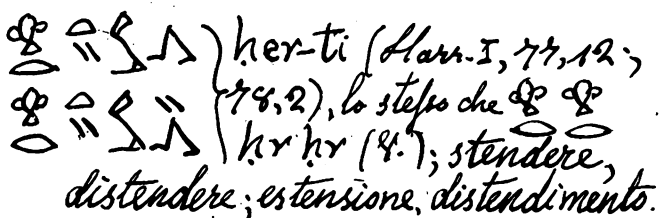 ḥer-ti (Harr. I, 77, 12;
78, 2), lo steſso che 𓁷𓂋 𓁷𓂋
ḥr ḥr (V.); stendere,
distendere; estensione, distendimento.